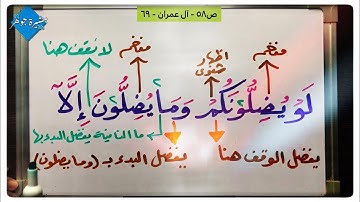 ص٥٨ - آل عمران - ٦٩
مفخم
إظهار شفوي
مفخم
لا نقف هنا
لَوْ يُضِلُّونَكُمْ وَمَا يُضِلُّونَ إِلَّآ
٢
ما النافية يفضل البدء بها
يفضل الوقف هنا
يفضل البدء بـ (وما يضلون)